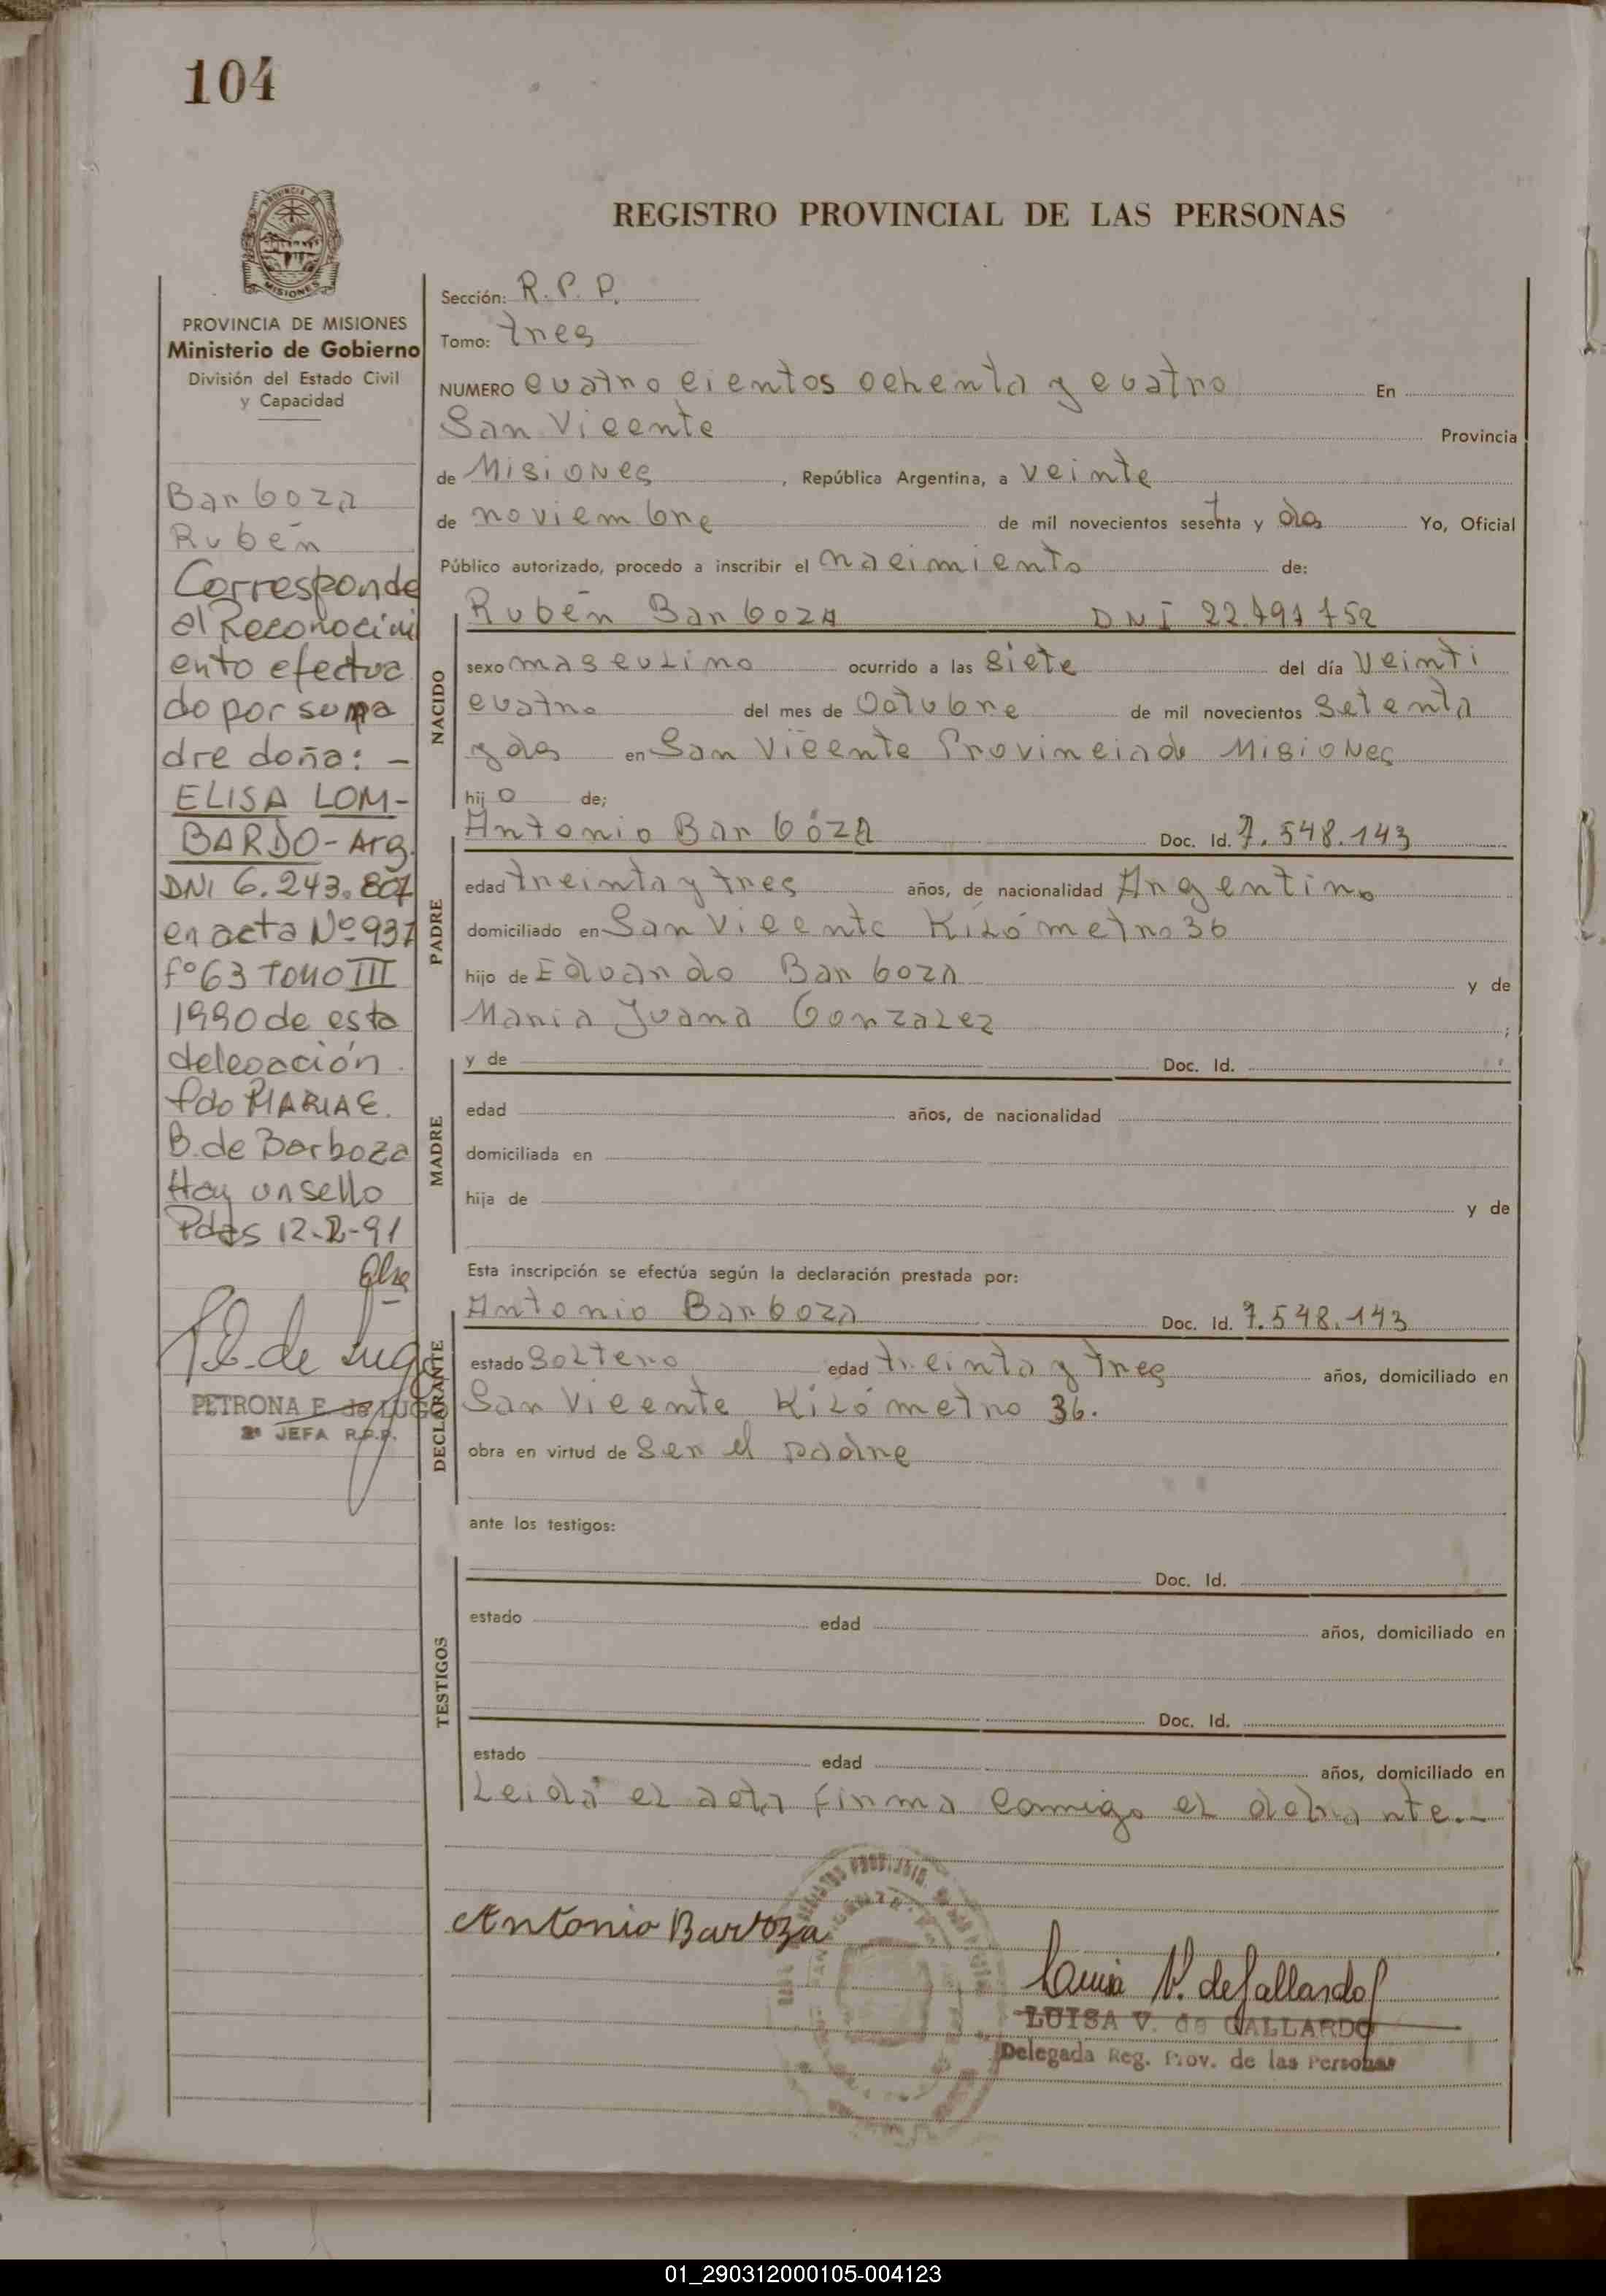 104
MISIONES
PROVINCIA DE MISIONES
Ministerio de Gobierno
División del Estado Civil
y Capacidad
Barboza
Rubén
Corresponde
al Reconocimi
ento efectua
do por su ma
dre doña: -
ELISA LOM-
BARDO - Arg.
DNI 6.243.807
en acta Nº 937
fº 63 TOMO III
1990 de esta
delegación.
fdo MARIA E.
B. de Barboza
Hay un sello
Pdas 12-2-91
P.E. de Lugo
PETRONA E. de LUGO
2ª JEFA R.P.P.
REGISTRO PROVINCIAL DE LAS PERSONAS
Sección: R.P.P.
Tomo: tres
NUMERO cuatro cientos ochenta y cuatro En
San Vicente Provincia
de Misiones, República Argentina, a veinte
de noviembre de mil novecientos sesenta y dos Yo, Oficial
Público autorizado, procedo a inscribir el nacimiento de:
NACIDO
Rubén Barboza DNI 22.491.752
sexo masculino ocurrido a las siete del día veinti
cuatro del mes de Octubre de mil novecientos setenta
y dos en San Vicente Provincia de Misiones
hijo de;
PADRE
Antonio Barboza Doc. Id. 7.548.143
edad treinta y tres años, de nacionalidad Argentino
domiciliado en San Vicente Kilómetro 36
hijo de Eduardo Barboza y de
Maria Juana Gonzalez ;
MADRE
y de Doc. Id.
edad años, de nacionalidad
domiciliada en
hija de y de
Esta inscripción se efectúa según la declaración prestada por:
DECLARANTE
Antonio Barboza Doc. Id. 7.548.143
estado Soltero edad treinta y tres años, domiciliado en
San Vicente Kilómetro 36.
obra en virtud de Ser el padre
ante los testigos:
TESTIGOS
Doc. Id.
estado edad años, domiciliado en
Doc. Id.
estado edad años, domiciliado en
Leida el acta firma conmigo el
Antonio Barboza
Luisa V. de Gallardo
LUISA V. de GALLARDO
Delegada Reg. Prov. de las Personas
01_290312000105-004123